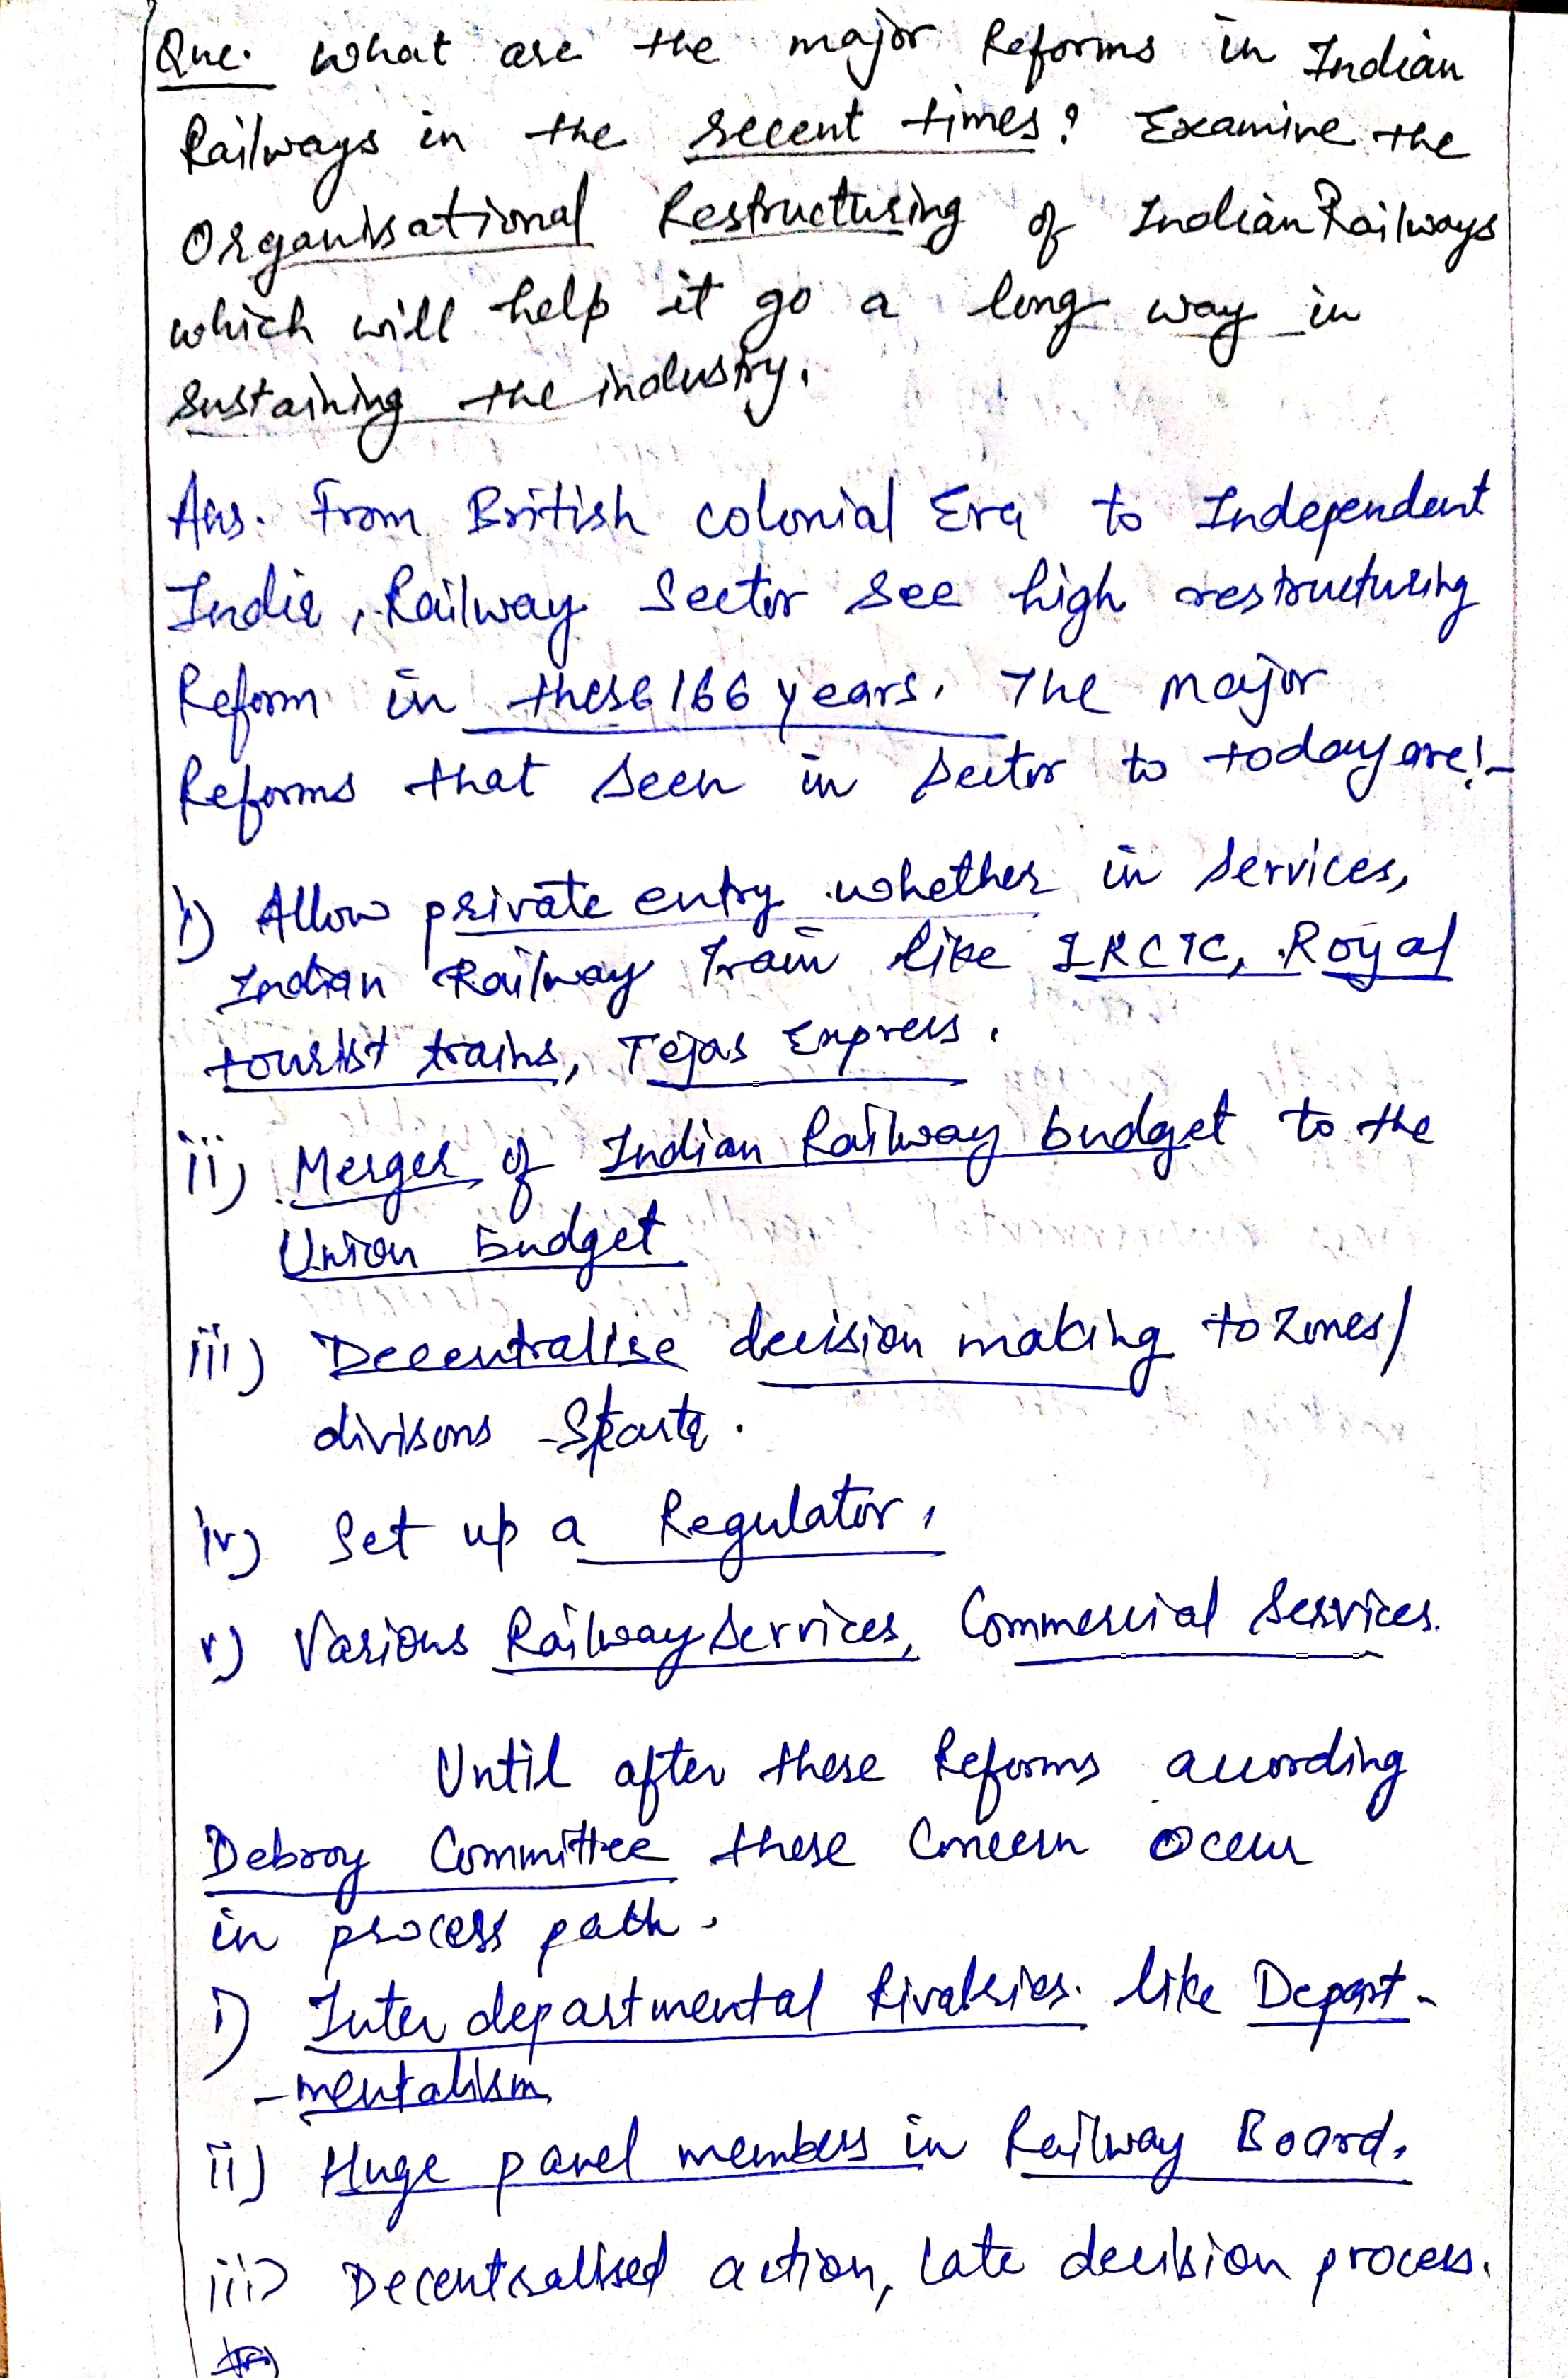 Que. What are the major Reforms in Indian
Railways in the recent times? Examine the
Organisational Restructuring of Indian Railways
which will help it go a long way in
sustaining the industry.
Ans. From British colonial Era to Independent
India, Railway Sector see high restructuring
Reform in these 166 years. The major
Reforms that seen in sector to today are:-
i) Allow private entry whether in services,
Indian Railway Train like IRCTC, Royal
tourist trains, Tejas Express.
ii) Merger of Indian Railway budget to the
Union budget
iii) Decentralise decision making to zones/
divisons
iv) Set up a Regulator.
v) Various Railway services, Commercial services.
Until after these Reforms according
Debroy Committee these Concern Occur
in process path.
i) Inter departmental Rivalries. like Depart-
-mentalism
ii) Huge panel members in Railway Board.
iii) Decentralised action, late decision process.